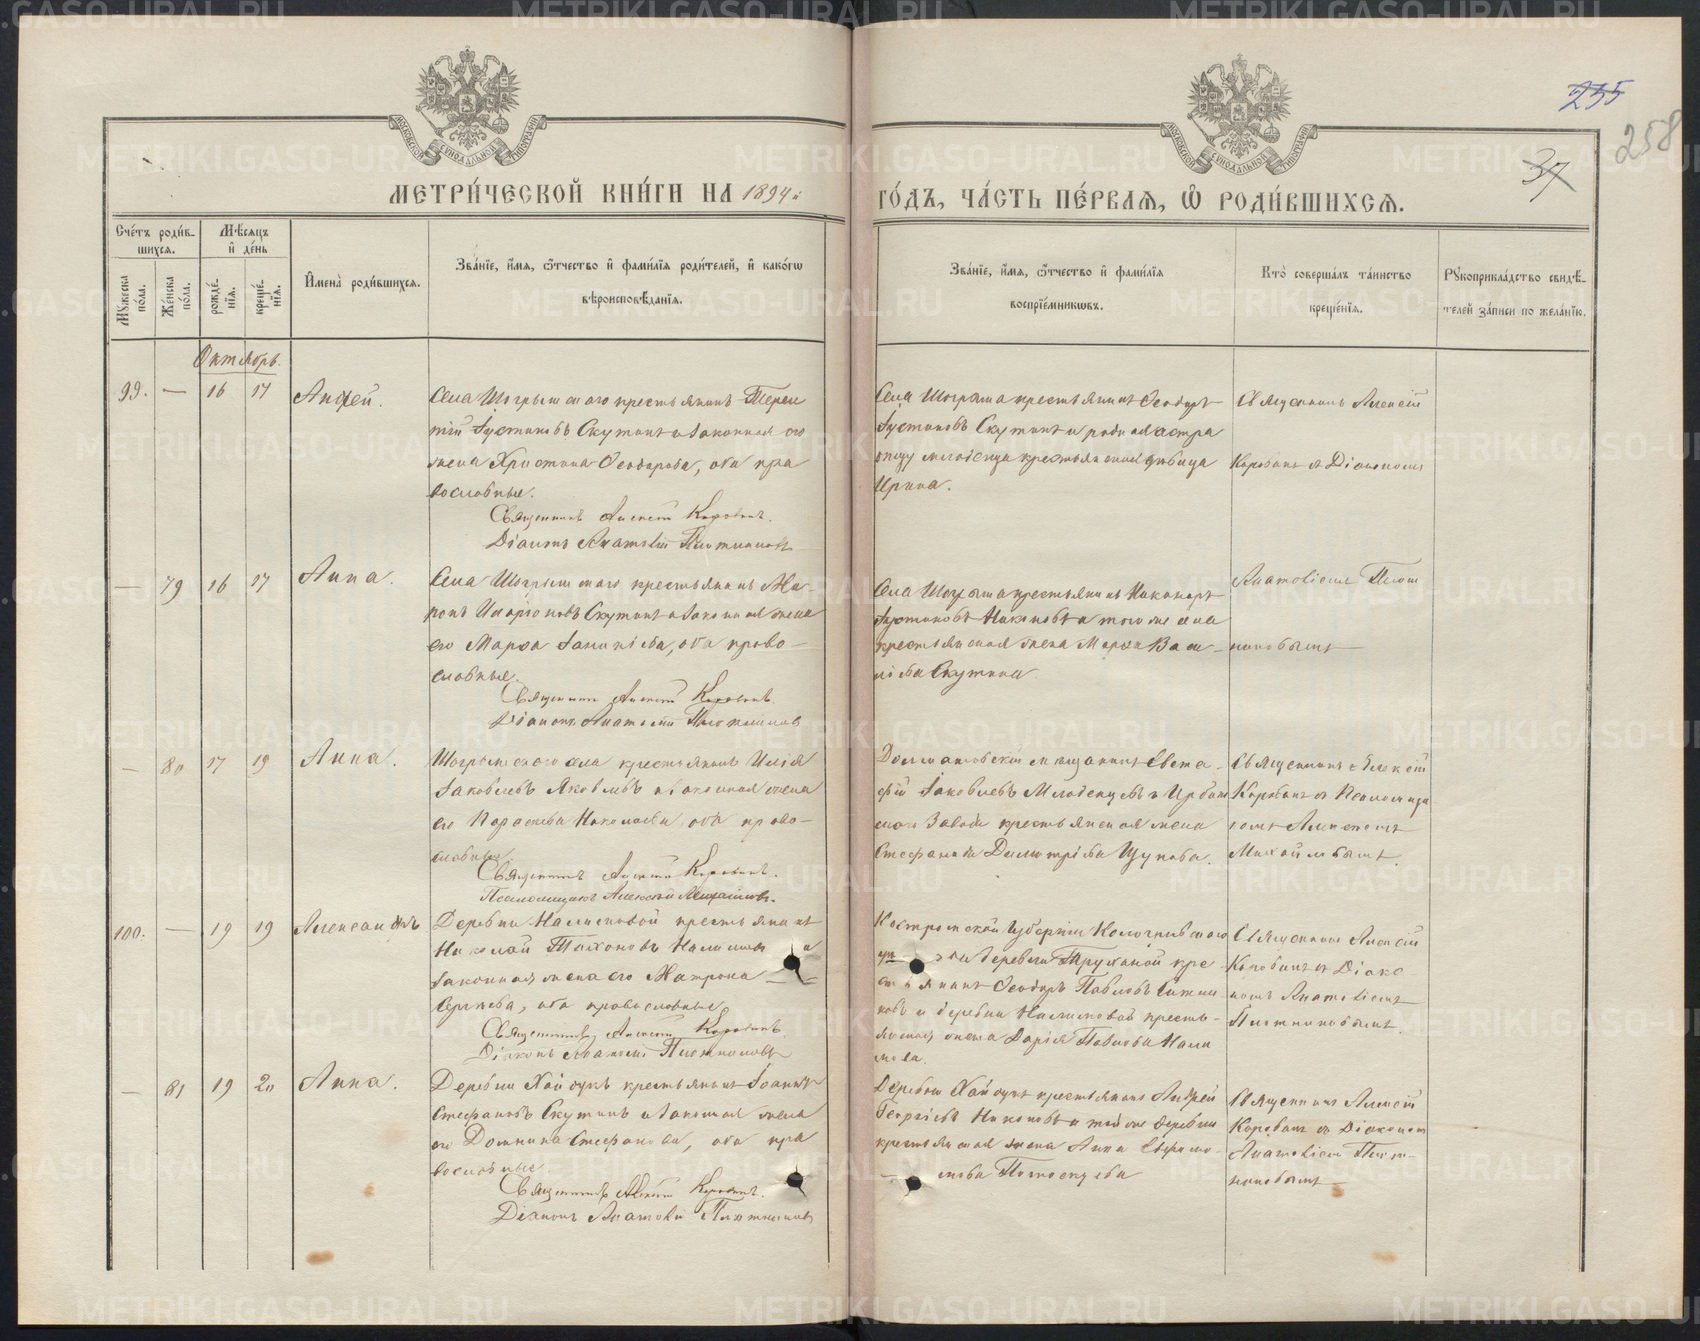 МЕТРИ́ЧЕСКОЙ КНИ́ГИ НА 1894й
ГО́ДЪ, ЧА́СТЬ ПЕ́РВАѦ, Ѽ РОДИ́ВШИХСѦ.
235
258
37
Сче́тъ роди́в-
шихсѧ.
Мꙋжеска
по́ла.
Же́нска
по́ла.
Мѣ́сѧцъ
и҆ де́нь
рожде́-
нїѧ.
креще́-
нїѧ.
И҆мена̀ роди́вшихсѧ.
Зва́нїе, и҆́мѧ, ѻ҆́тчество и҆ фами́лїѧ роди́телей, и҆ како́гѡ
вѣроисповѣ́данїѧ.
Зва́нїе, и҆́мѧ, ѻ҆́тчество и҆ фами́лїѧ
воспрїе́мникѡвъ.
Кто̀ соверша́лъ та́инство
креще́нїѧ.
Рꙋкоприкла́дство свидѣ́-
телей за́писи по жела́нїю.
Октябрь.
99. — 16 17 Андрей.
Села Шогрышскаго крестьянинъ Терен
тій Іустиновъ Скутинъ и законная его
жена Христина Ѳеодорова, оба пра
вославные.
Священникъ Алексѣй Коровинъ.
Діаконъ Анатолій Плотниковъ
Села Шогрыша крестьянинъ Ѳеодоръ
Іустиновъ Скутинъ и родная сестра
отцу младенца крестьянская дѣвица
Ирина.
Священникъ Алексѣй
Коровинъ съ Діакономъ
Анатоліемъ Плот
никовымъ
— 79 16 17 Анна.
Села Шогрышскаго крестьянинъ Ма-
Скутинъ и законная жена
его Марѳа оба право-
славные.
Священникъ Алексѣй Коровинъ.
Діаконъ Анатолій Плотниковъ
Села Шогрыша крестьянинъ Никаноръ
Іустиновъ Никоновъ и того же села
крестьянская жена Марѳа Васи-
льева Скутина
— 80 17 19 Анна.
Шогрышскаго села крестьянинъ Илія
Іаковлевъ Яковлевъ и законная жена
его Параскева Николаева, оба право-
славные.
Священникъ Алексѣй Коровинъ.
Псаломщикъ Алексѣй Михайловъ.
Долматовскій мѣщанинъ Евста-
фій Іаковлевъ Младенцевъ и Ирбит
скаго Завода крестьянская жена
Стефанида Димитріева Щупова.
Священникъ Алексѣй
Коровинъ съ Псаломщи
комъ Алексѣемъ
Михайловымъ.
100. — 19 19 Александръ
Деревни Налимовой крестьянинъ
Николай Тихоновъ Налимовъ и
законная жена его Матрона
Сергіева, оба православные.
Священникъ Алексѣй Коровинъ.
Діаконъ Анатолій Плотниковъ
Костромской Губерніи Кологривскаго
деревни кре
стьянинъ Ѳеодоръ Павловъ
новъ и деревни Налимовой кресть-
янская жена Дарія Павлова Нали
мова.
Священникъ Алексѣй
Коровинъ съ Діако
номъ Анатоліемъ
Плотниковымъ.
— 81 19 20 Анна.
Деревни крестьянинъ Іоаннъ
Стефановъ Скутинъ и законная жена
его Домнина Стефанова, оба пра
вославные.
Священникъ Алексѣй Коровинъ.
Діаконъ Анатолій Плотниковъ
Деревни крестьянинъ Андрей
Георгіевъ Никоновъ и той же деревни
крестьянская жена Анна
Священникъ Алексѣй
Коровинъ съ Діакономъ
Анатоліемъ Плот-
никовымъ
METRIKI.GASO-URAL.RU